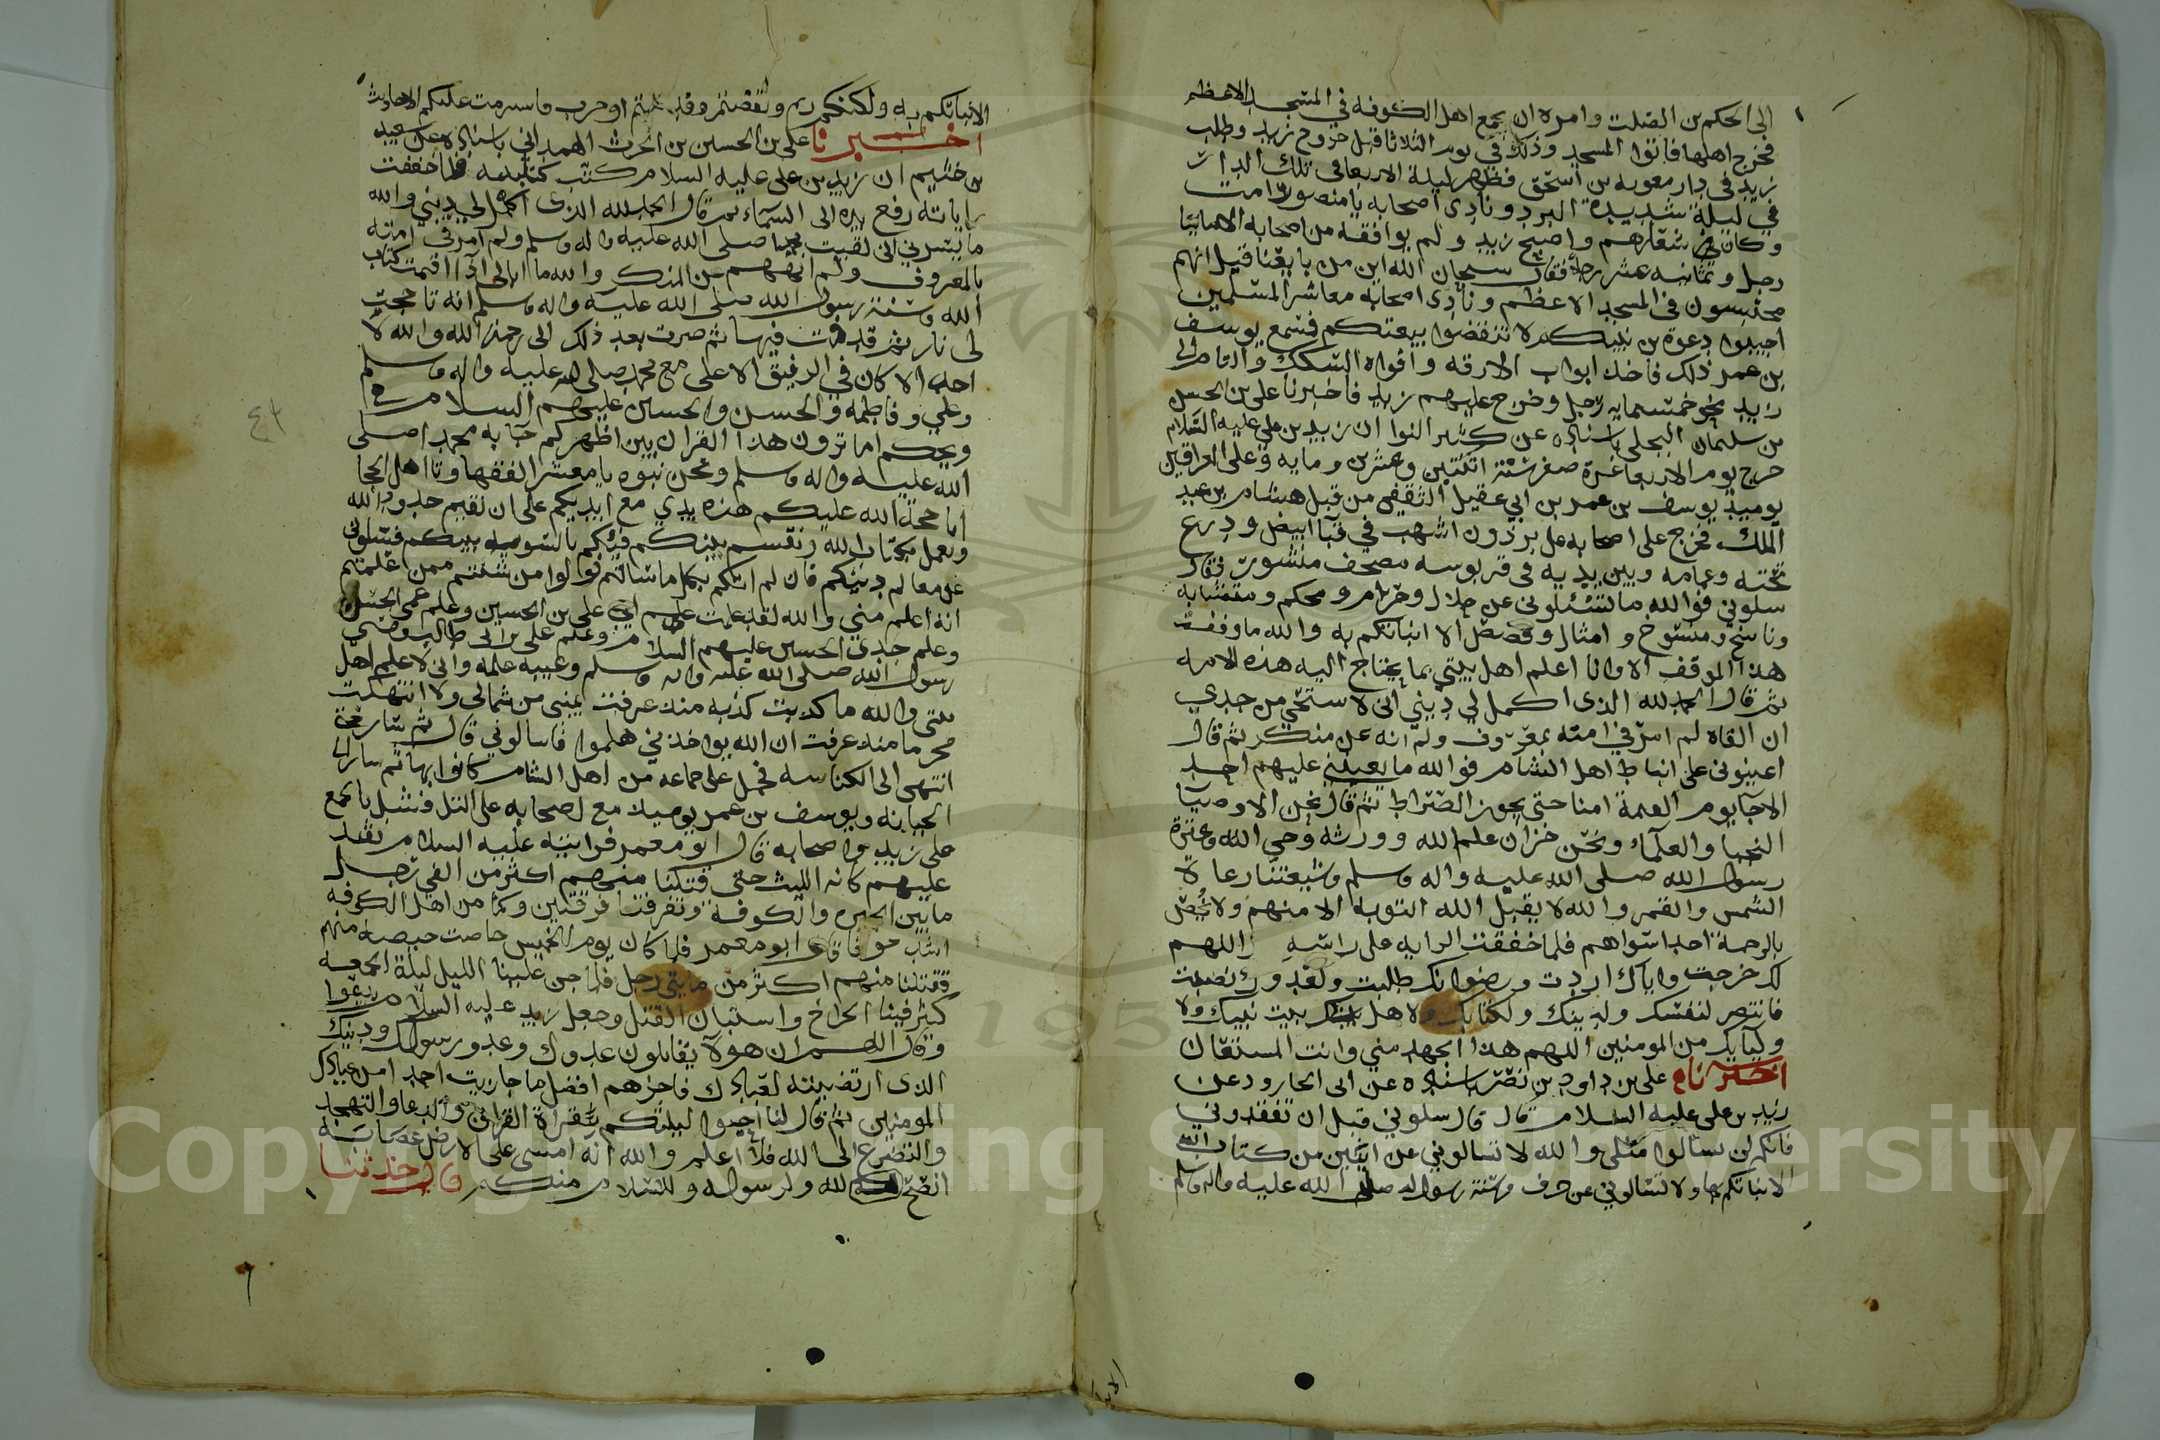 الى الحكم بن الصلت وامره ان يجمع اهل الكوفه في المسجد الاعظم
فخرج اهلها فاتوا المسجد وذلك في يوم الثلاثا قبل خروج زيد وطلب
زيد في دار معويه بن اسحق فظهر ليلة الاربعا في تلك الدار
في ليلة شديدة البرد ونادى اصحابه يا منصور امت
وكان شعارهم واصبح زيد ولم يوافقه من اصحابه الا مايتا
رجل وثمانيه عشر رجلا فقال سبحان الله اين من بايعنا قيل انهم
محتبسون في المسجد الاعظم ونادى اصحابه معاشر المسلمين
اجيبوا دعوة بن نبيكم لا تنقضوا بيعتكم فسمع يوسف
بن عمر ذلك فاخذ ابواب الازقه وافواه السكك والتقا الى
زيد نحو خمسمايه رجل وخرج عليهم زيد فاخبرنا علي بن الحسين
بن سليمان البجلي باسناده عن كثير النوا ان زيد بن علي عليه السلام
خرج يوم الاربعا غرة صفر سنة اثنتين وعشرين ومايه وعلى العراقين
يوميذ يوسف بن عمر بن ابي عقيل الثقفي من قبل هشام بن عبد
الملك فخرج على اصحابه على برذون اشهب في قبا ابيض ودرع
تحته وعمامه وبين يديه في قربوسه مصحف منشور فقال
سلوني فوالله ما تسئلوني عن حلال وحرام ومحكم ومتشابه
وناسخ ومنسوخ وامثال وقصص الا انباتكم به والله ما وقفت
هذا الموقف الا وانا اعلم اهل بيتي بما يحتاج اليه هذه الامه
ثم قال الحمد لله الذى اكمل لي ديني اني لاستحي من جدي
ان القاه لم امر في امته بمعروف ولم انه عن منكر ثم قال
اعينوني على انباط اهل الشام فوالله ما يعينني عليهم احد
الا جا يوم القيمة امنا حتى يجوز الصراط ثم قال نحن الاوصيا
النجبا والعلماء ونحن خزان علم الله وورثه وحي الله وعترة
رسول الله صلى الله عليه واله وسلم وشيعتنا رعاة
الشمس والقمر والله لا يقبل الله التوبه الا منهم ولا يخص
بالرحمة احدا سواهم فلما خفقت الرايه على راسه اللهم
لك خرجت واياك اردت ورضوانك طلبت ولعدوك نصبت
فانتصر لنفسك ولدينك ولكتابك ولاهل بيت نبيك ولا
وليايك من المومنين اللهم هذا الجهد مني وانت المستعان
اخبرنا علي بن داود بن نصر باسناده عن ابى الجارود عن
زيد بن علي عليه السلام قال قال سلوني قبل ان تفقدوني
فانكم لن تسالوا مثلي والله لا تسالوني عن اية من كتاب الله
الا انباتكم بها ولا تسالوني عن حرف من سنة رسول الله صلى الله عليه واله وسلم
الا انباتكم به ولكنكم زدتم ونقصتم وقدمتم واخرتم فاشتبهت عليكم الاحاديث
اخبرنا علي بن الحسين بن الحرث الهمداني باسناده عن سعيد
بن خثيم ان زيد بن علي عليه السلام كتب كتايبه فلما خفقت
راياته رفع يده الى السماء ثم قال الحمد لله الذى اكمل لي ديني والله
ما يسرني اني لقيت محمدا صلى الله عليه واله وسلم ولم امر في امته
بالمعروف ولم انههم عن المنكر والله ما ابالي اذا اقمت كتاب
الله وسنة رسول الله صلى الله عليه واله وسلم انه تاججت
لي نار ثم قذفت فيها ثم صرت بعد ذلك الى رحمة الله والله لا
احد الا كان في الرفيق الاعلى مع محمد صلى الله عليه واله وسلم
وعلي وفاطمه والحسن والحسين عليهم السلام
ويحكم اما ترون هذا القران بين اظهركم جا به محمد صلى
الله عليه واله وسلم ونحن بنوه يا معشر الفقها ويا اهل الحجا
انا حجة الله عليكم هذه يدي مع ايديكم على ان نقيم حدود الله
ونعمل بكتاب الله ونقسم بينكم فيئكم بالسويه فسلوني
عن معالم دينكم فان لم انبئكم بكل ما سالتم فولوا من شئتم ممن علمتم
انه اعلم مني والله لقد علمت علم ابي علي بن الحسين وعلم عمي الحسن
وعلم جدي الحسين عليهم السلام وعلم علي بن ابى طالب وصي
رسول الله صلى الله عليه واله وسلم وعيبه علمه واني لاعلم اهل
بيتي والله ما كذبت كذبه منذ عرفت يميني من شمالي ولا انتهكت
محرما منذ عرفت ان الله يواخذني هلموا فاسالوني قال ثم سار حتى
انتهى الى الكناسه فحمل على جماعه من اهل الشام كانوا بها ثم سار الى
الجبانه ويوسف بن عمر يوميذ مع اصحابه على التل فشد بالجمع
على زيد واصحابه قال ابو معمر فرايته عليه السلام يشد
عليهم كانه الليث حتى قتلنا منهم اكثر من الفي رجل
ما بين الحيره والكوفه وتفرقنا فرقتين وكنا من اهل الكوفه
اشد خوفا قال ابو معمر فلما كان يوم الخميس حاصت حيصه منهم
فقتلنا منهم اكثر من مايتي رجل فلما جن علينا الليل ليلة الجمعه
كثر فينا الجراح واستبان القتل وجعل زيد عليه السلام يدعوا
وقال اللهم ان هولا يقاتلون عدوك وعدو رسولك ودينك
الذى ارتضيته لعبادك فاجزهم افضل ما جازيت احدا من عبادك
المومنين ثم قال لنا احيوا ليلتكم بقراة القران والدعا والتهجد
والتضرع الى الله فلا اعلم والله انه امسى على الارض عصابه
انصح لله ولرسوله وللاسلام منكم قال حدثنا